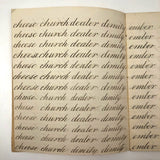 cheese church dealer dimity ember
cheese church dealer dimity ember
cheese church dealer dimity ember
cheese church dealer dimity ember
cheese church dealer dimity ember
cheese church dealer dimity ember
cheese church dealer dimity ember
cheese church dealer dimity ember
cheese church dealer dimity ember
cheese church dealer dimity ember
cheese church dealer dimity ember
cheese church dealer dimity ember